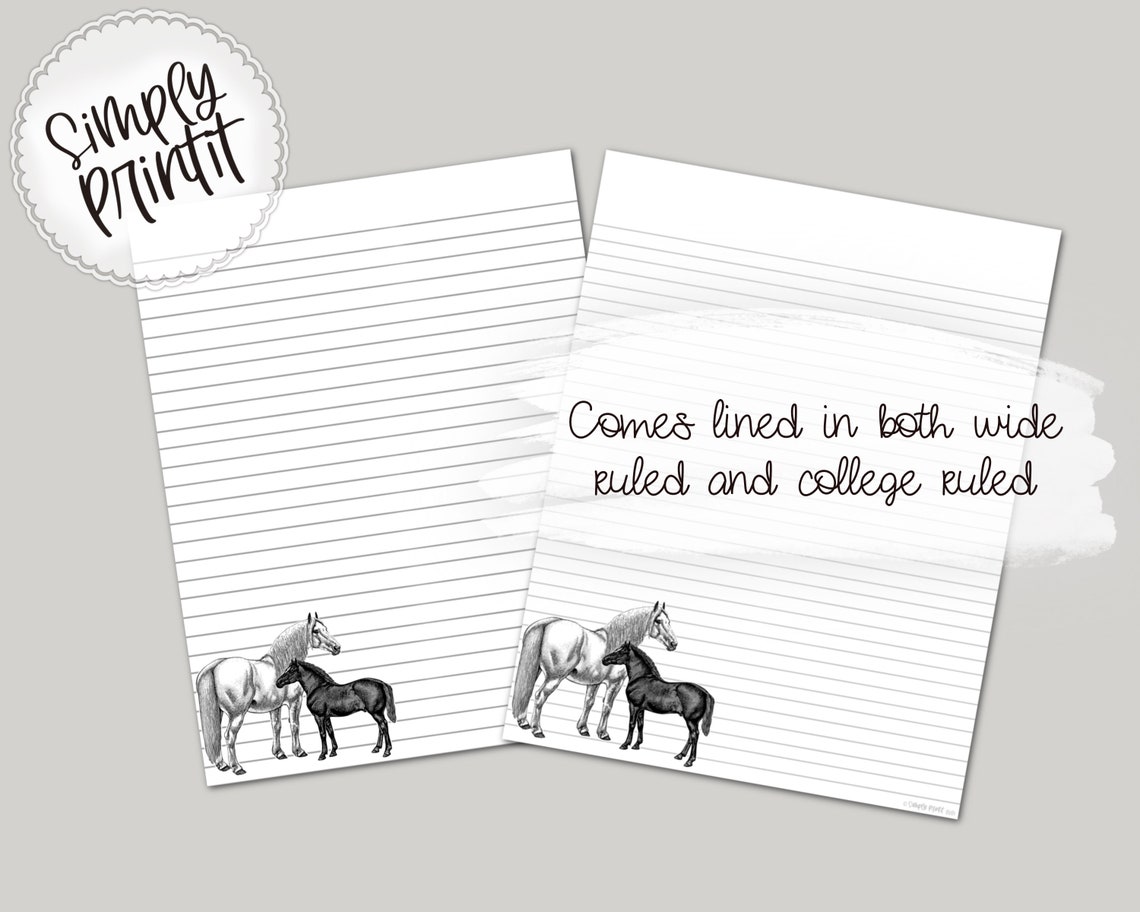 Simply
Printit
Comes lined in both wide
ruled and college ruled